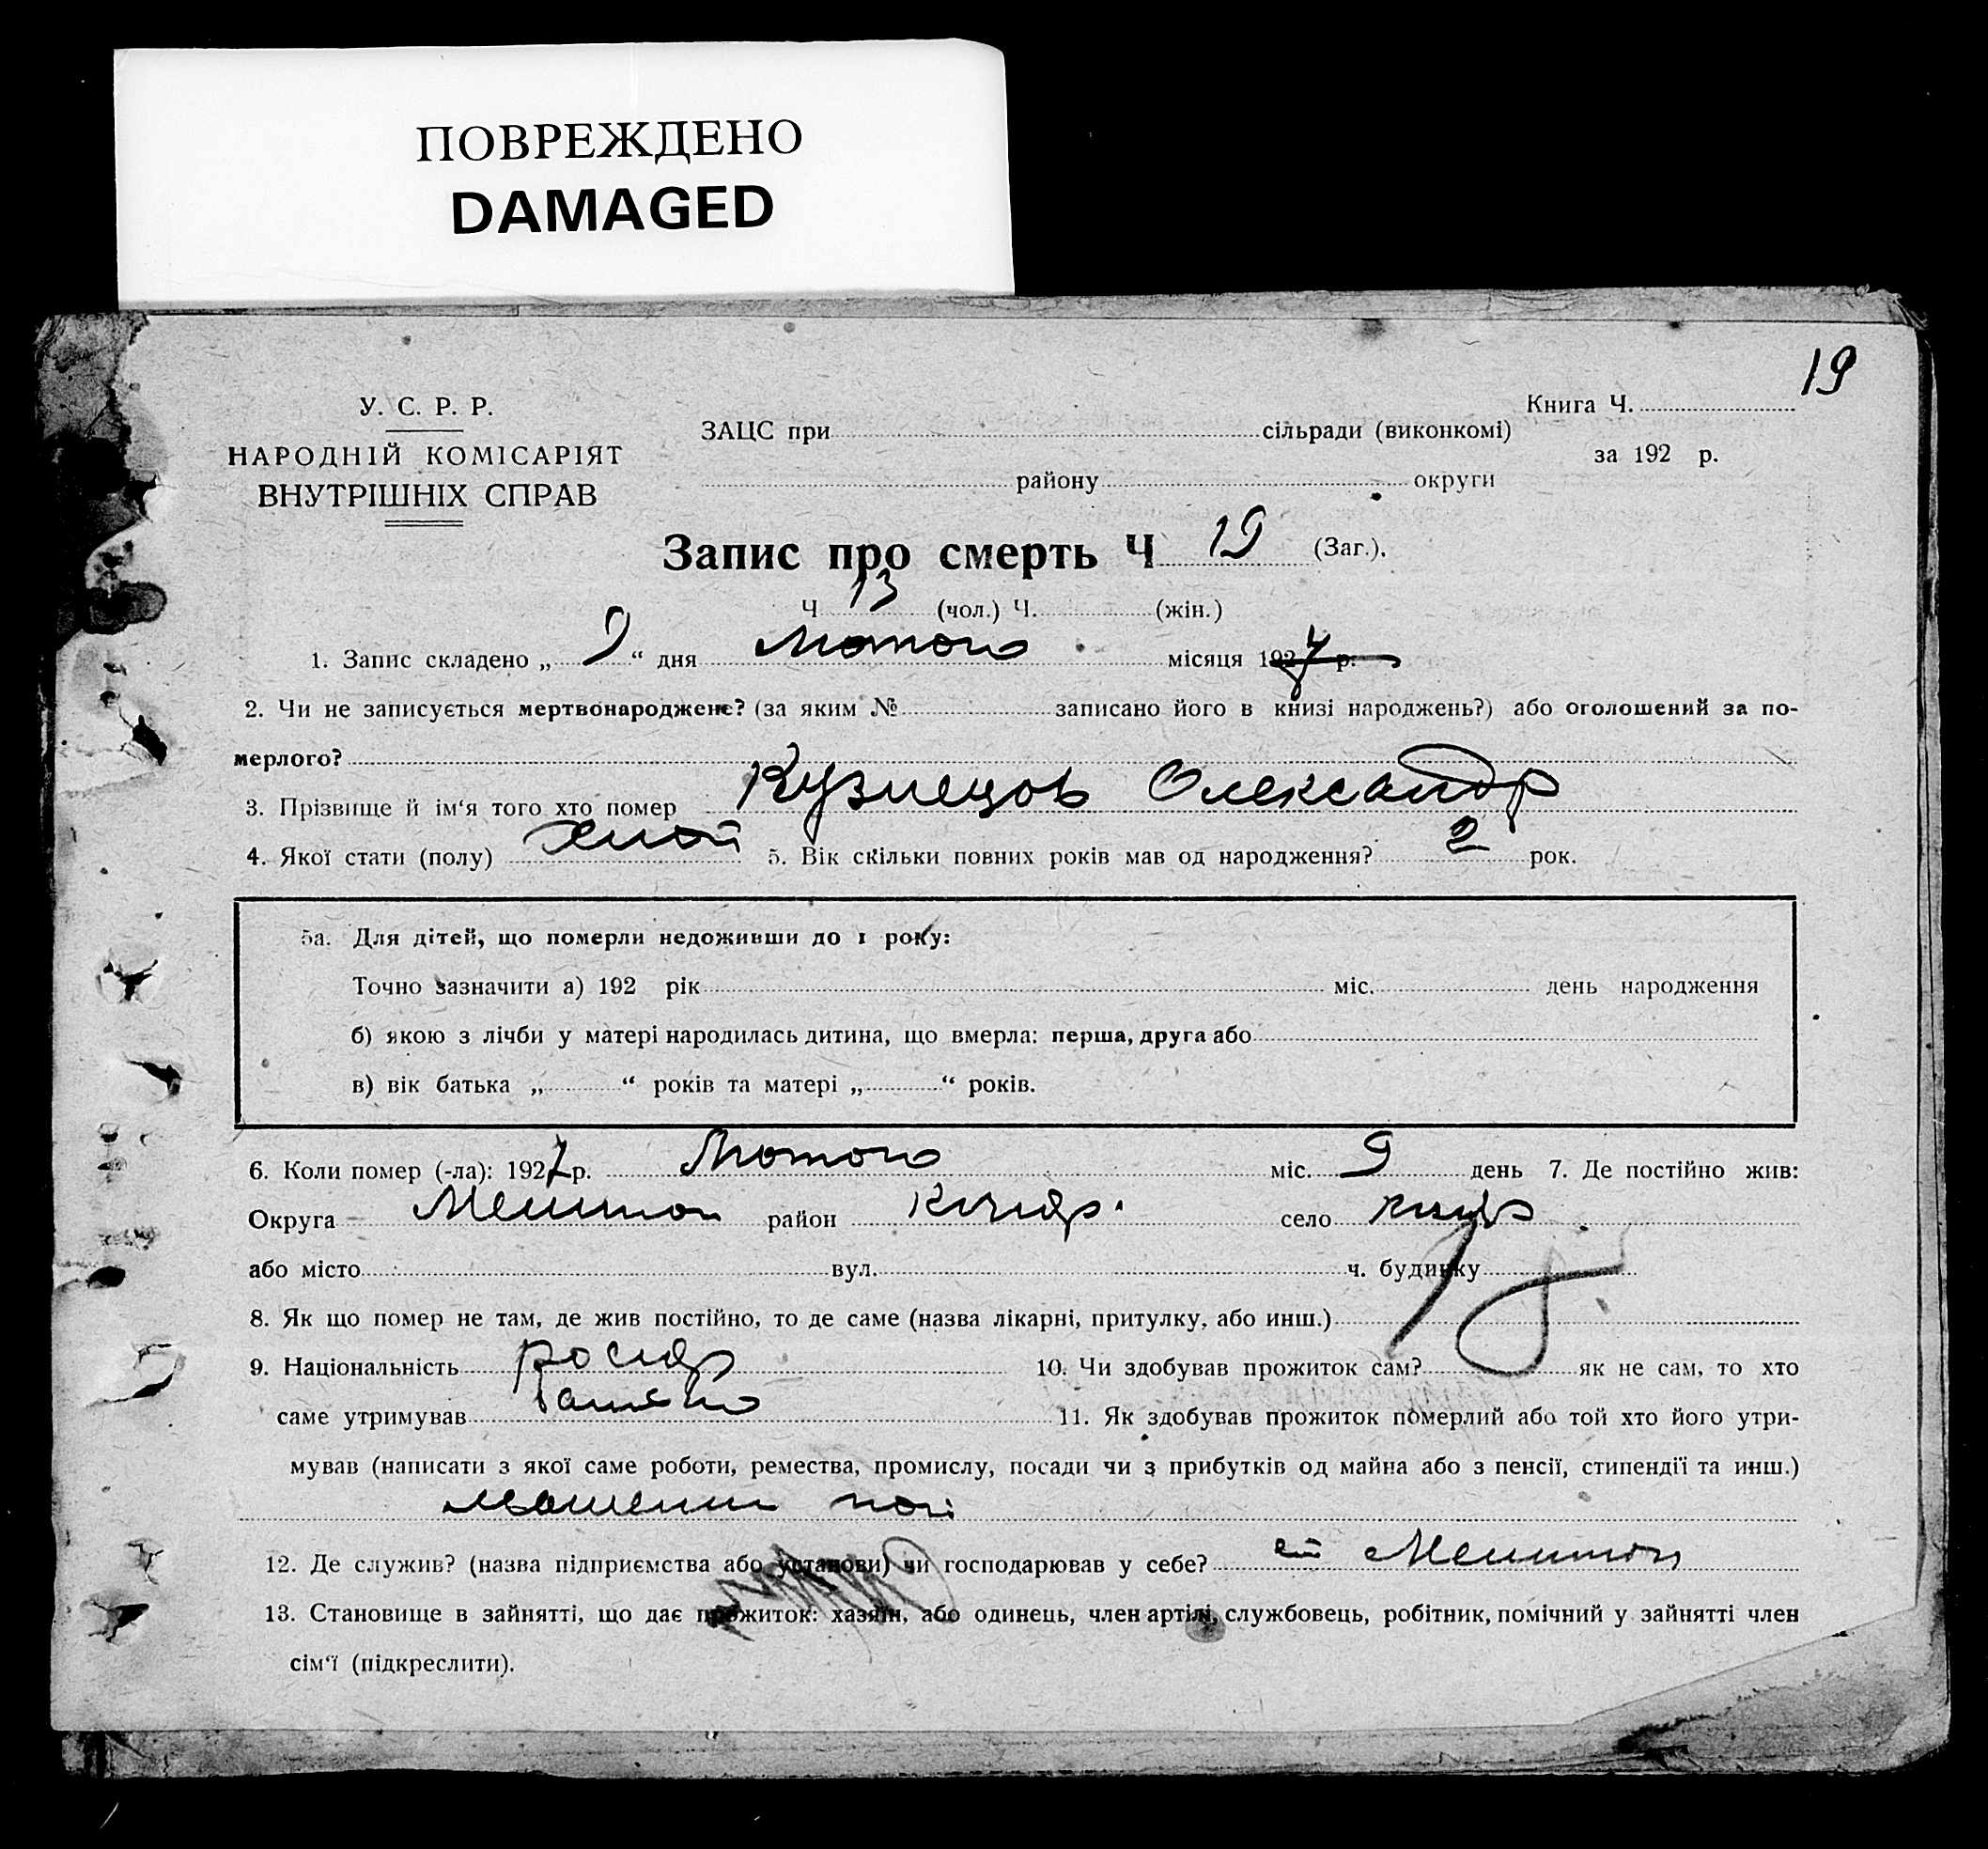 ПОВРЕЖДЕНО
DAMAGED
19
У. С. Р. Р.
НАРОДНІЙ КОМІСАРІЯТ
ВНУТРІШНІХ СПРАВ
ЗАЦС при сільради (виконкомі)
району округи
Книга Ч.
за 192 р.
Запис про смерть Ч 19 (Заг.).
Ч 13 (чол.) Ч. (жін.)
1. Запис складено „ 9 “ дня Лютого місяця 1927 р.
2. Чи не записується мертвонароджене? (за яким № записано його в книзі народжень?) або оголошений за по-
мерлого?
3. Прізвище й ім‘я того хто помер Кузнецов Олександр
4. Якої стати (полу) 5. Вік скільки повних років мав од народження? 2 рок.
5а. Для дітей, що померли недоживши до 1 року:
Точно зазначити а) 192 рік міс. день народження
б) якою з лічби у матері народилась дитина, що вмерла: перша, друга або
в) вік батька „ “ років та матері „ “ років.
6. Коли помер (-ла): 1927 р. Лютого міс. 9 день 7. Де постійно жив:
Округа район село
або місто вул. ч. будинку
8. Як що помер не там, де жив постійно, то де саме (назва лікарні, притулку, або инш.)
9. Національність 10. Чи здобував прожиток сам? як не сам, то хто
саме утримував 11. Як здобував прожиток померлий або той хто його утри-
мував (написати з якої саме роботи, ремества, промислу, посади чи з прибутків од майна або з пенсії, стипендії та инш.)
12. Де служив? (назва підприємства або установи) чи господарював у себе?
13. Становище в зайнятті, що дає прожиток: хазяїн, або одинець, член артілі, службовець, робітник, помічний у зайнятті член
сім‘ї (підкреслити).